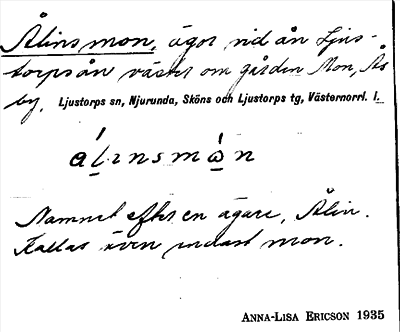 Ålinsmon, ägor vid ån Ljus-
torpsån väster om gården Mon, Ås
by. Ljustorps sn, Njurunda, Sköns och Ljustorps tg, Västernorrl. l.
ál̲ɩnsmὼ̲n
Namnet efter en ägare, Ålin.
Kallas även endast mon.
ANNA-LISA ERICSON 1935